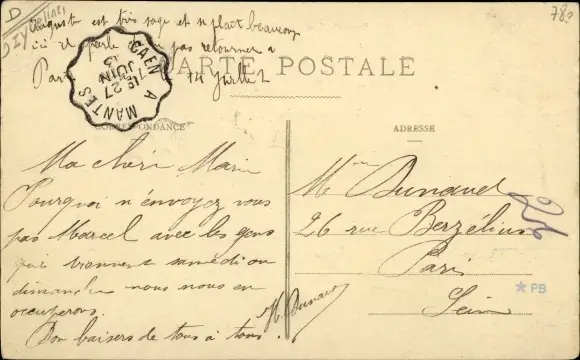 D
Auguste est très sage et se plait beaucoup
ici il parle de pas retourner a
Paris 14 Juillet
78
CARTE POSTALE
CAEN A MANTES
27
JUIN
13
CORRESPONDANCE
ADRESSE
Ma chère Marie
Pourquoi n'envoyez vous
pas Marcel avec les gens
qui viennent samedi ou
dimanche nous nous en
occuperons.
Bon baisers de tous à tous.
Dunand
Mme Dunand
26 rue Berzélius
Paris
Seine
PB